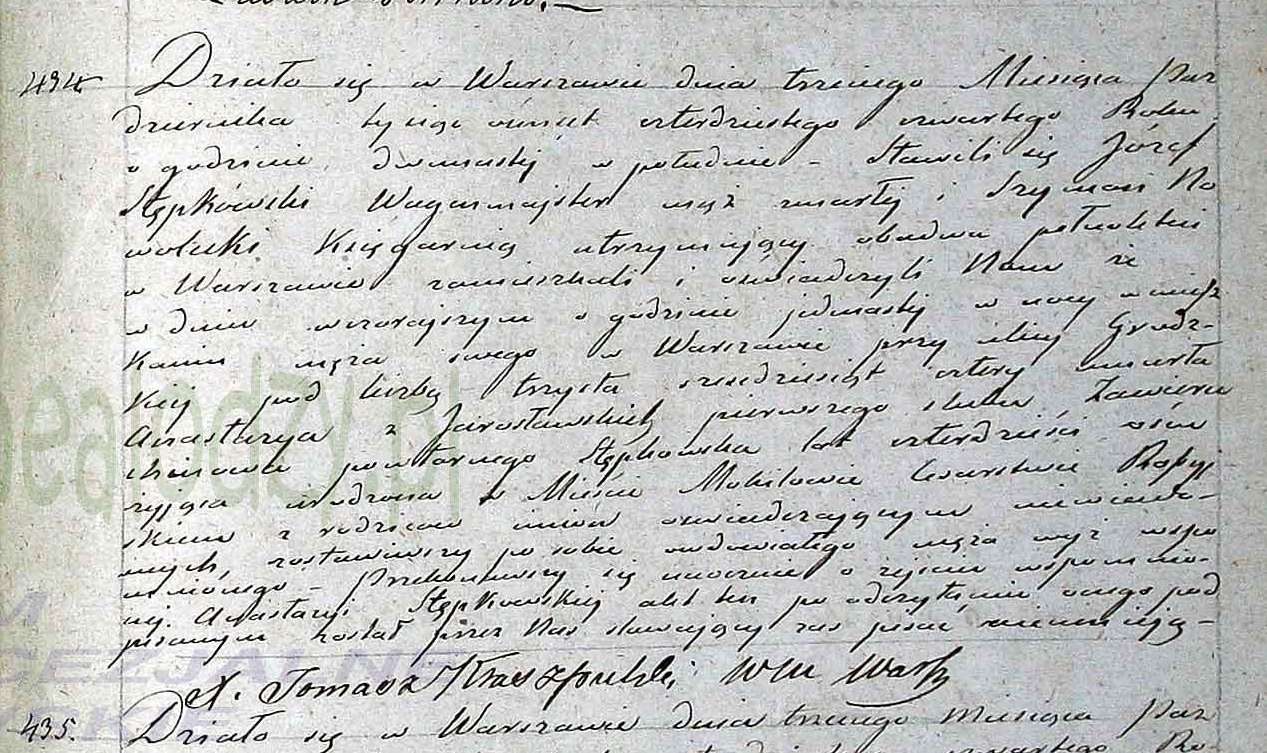 434 Działo się w Warszawie dnia trzeciego Miesiąca Paz
dziernika tysiąc ośmset czterdziestego czwartego Roku
o godzinie dwunastej w południe – Stawili się Józef
Stępkowski Wagenmajster mąż zmarłej i Szymon No
wolecki Księgarnię utrzymujący obadwa pełnoletni
w Warszawie zamieszkali i oświadczyli Nam że
w dniu wczorajszym o godzinie jedenastej w nocy w miesz
kaniu męża swego w Warszawie przy ulicy Grodz-
kiej pod liczbą trzysta sześdziesiąt cztery umarła
Anastazya z Jarosławskich pierwszego ślubu
powtórnego Stępkowska lat czterdzieści ośm
żyjąca urodzona w Mieście Mohilowie Cesarstwie Rossyj
skiem z rodziców imion oświadczającym niewiado-
mych, zostawiwszy po sobie owdowiałego męża wyż wspo
mnionego – Przekonawszy się naocznie o zejściu wspomnio-
nej Anastazyi Stępkowskiej akt ten po odczytaniu onego pod
pisanym został przez Nas stawający zaś pisać nieumieją –
X. Tomasz
435. Działo się w Warszawie dnia trzeciego Miesiąca Paz
czwartego
nealodzy.pl